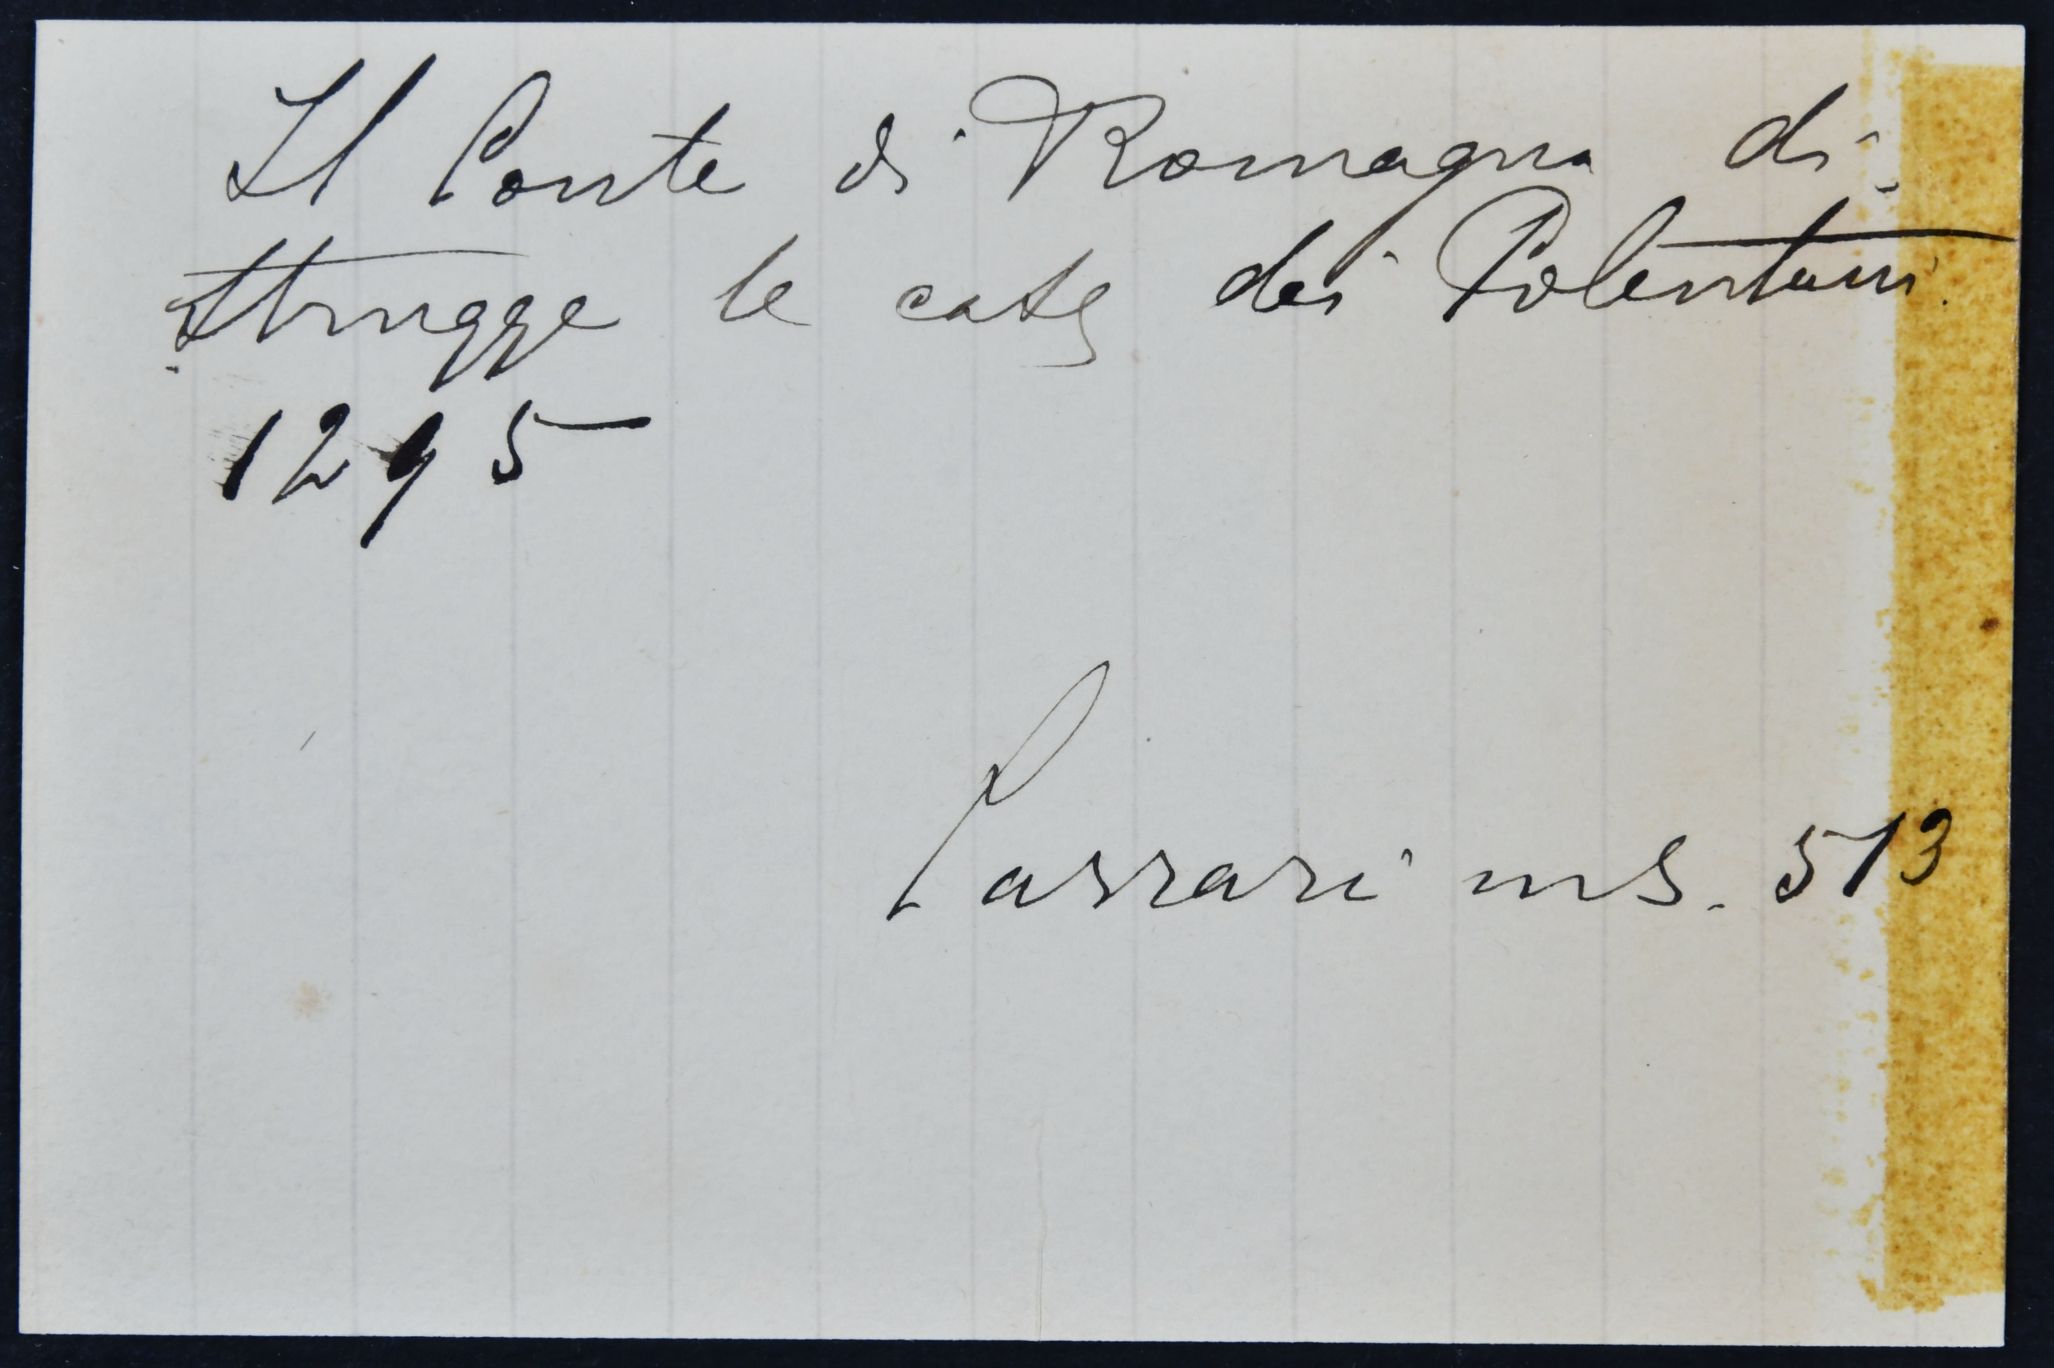 Il Conte di Romagna di,
strugge le case dei Polentani.
1295
Carrari ms. 513